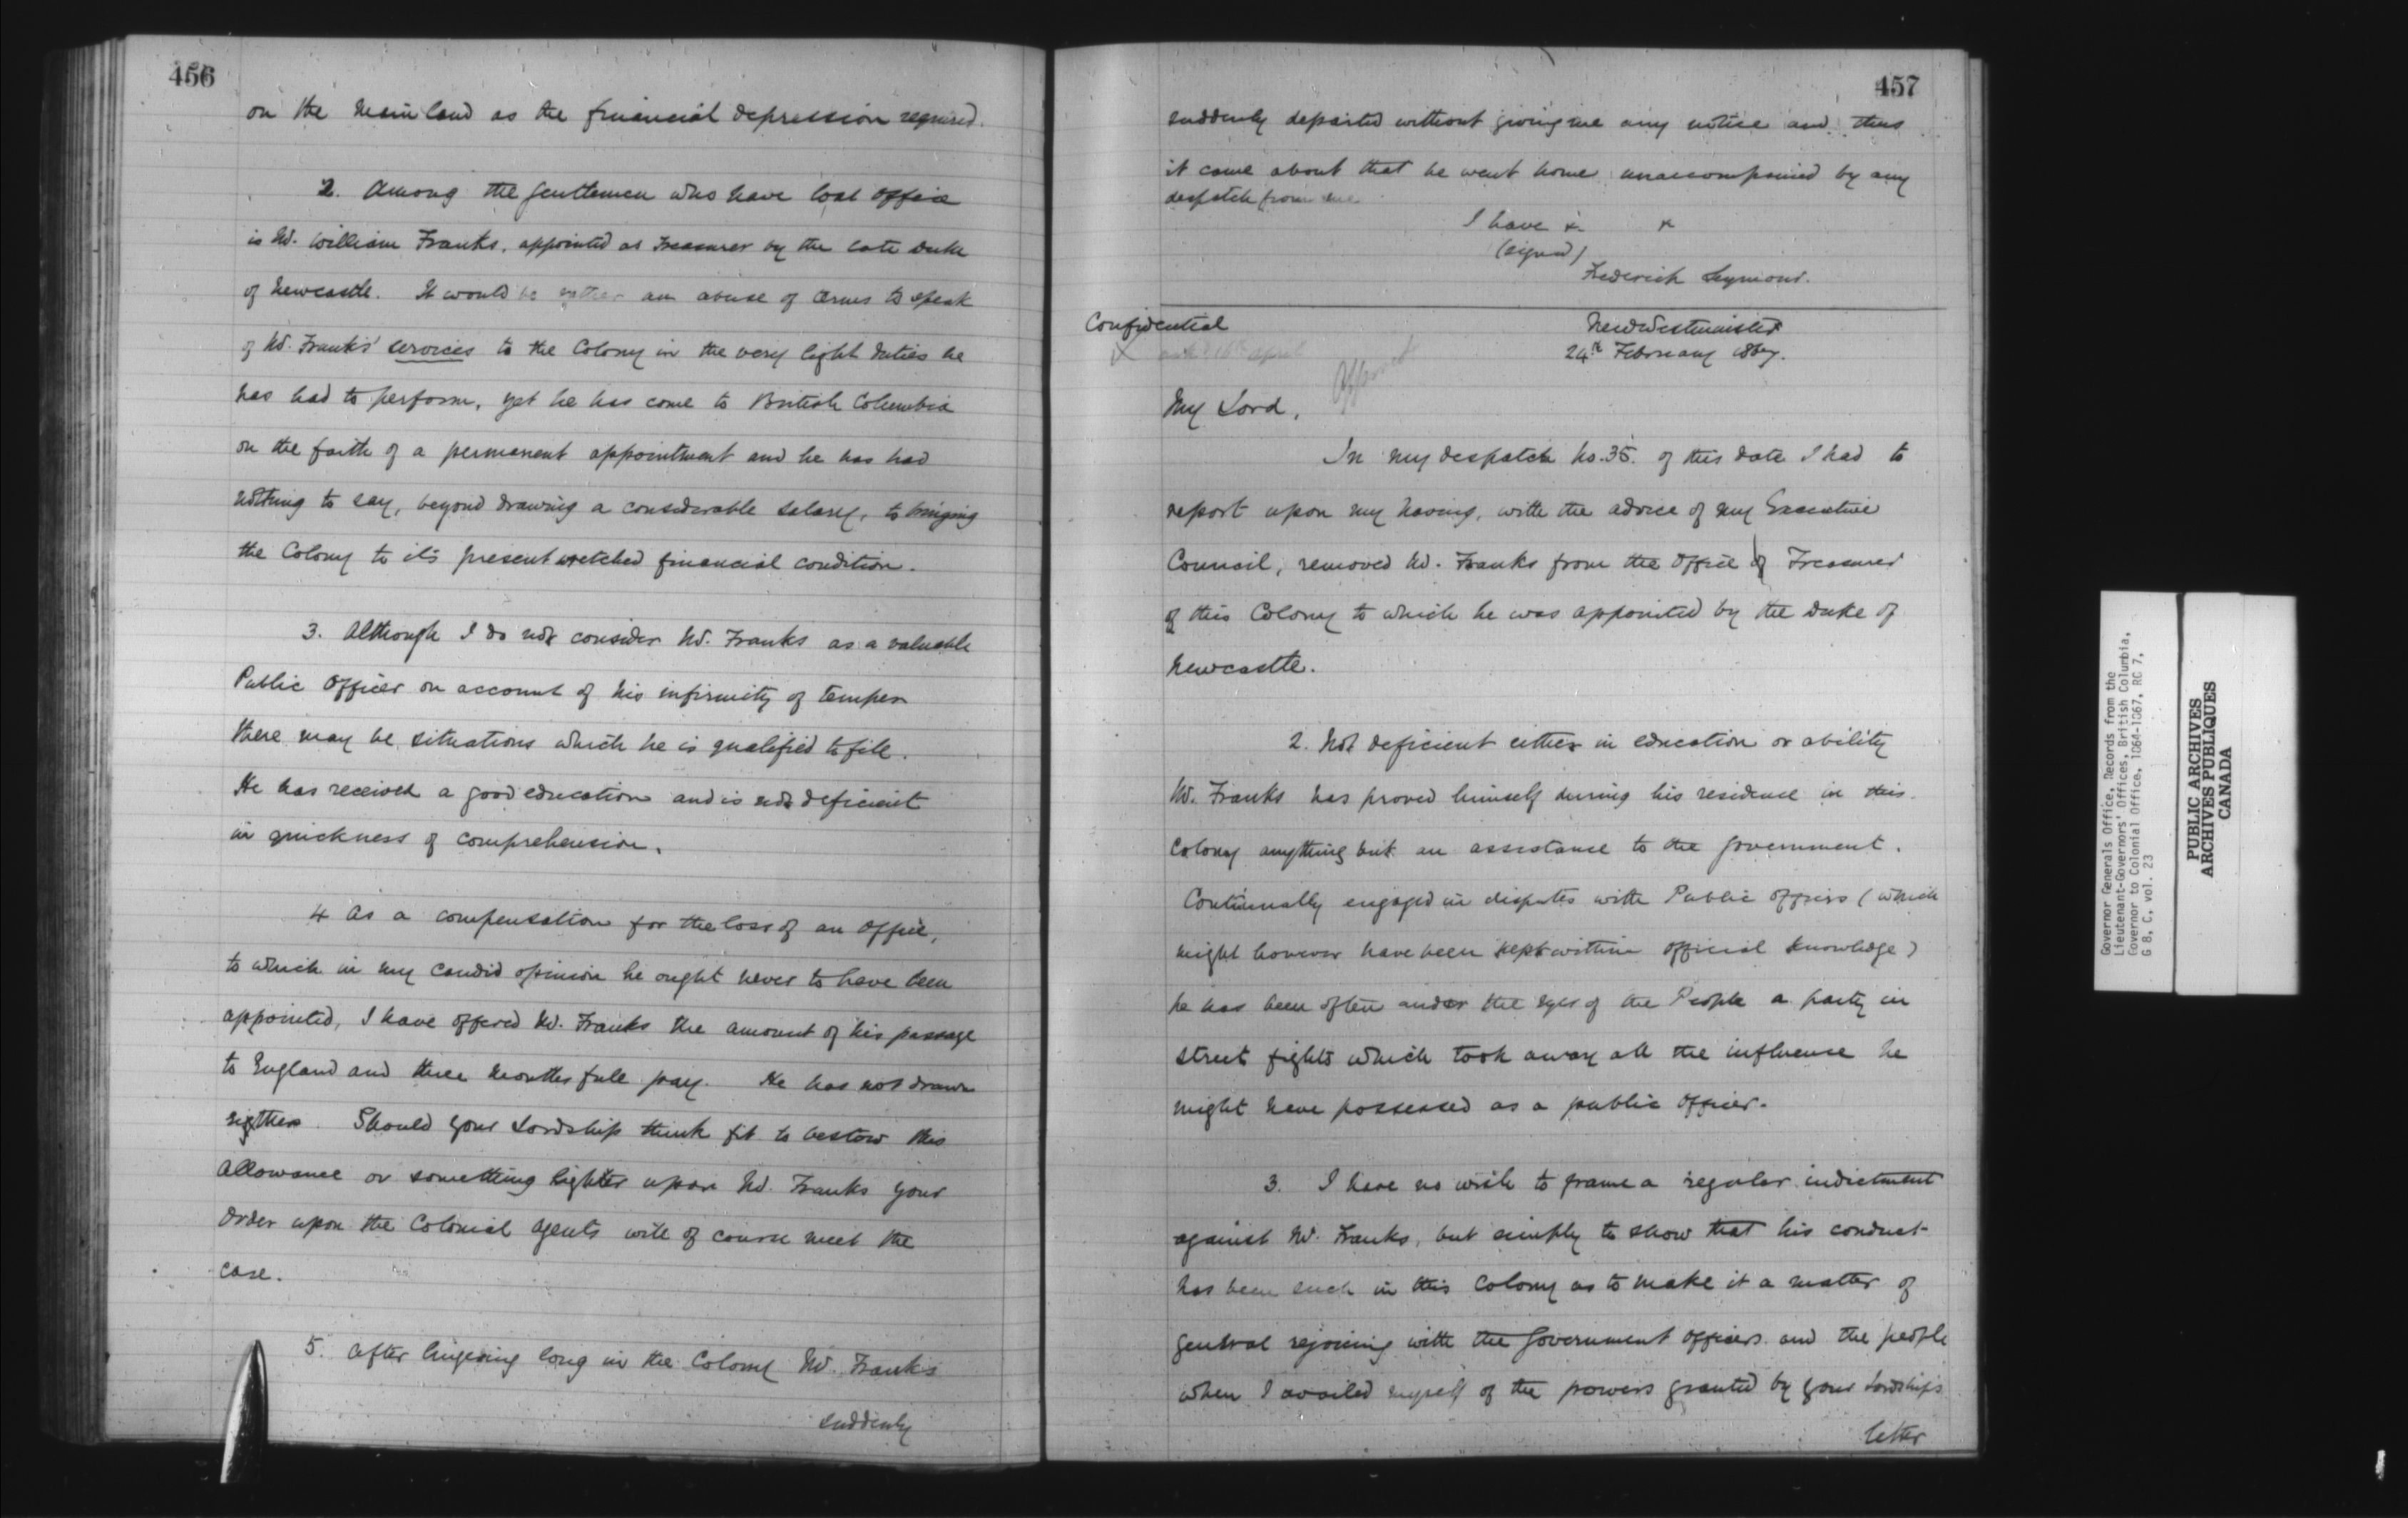 456
on the Mainland as the financial depression required.
2. Among the Gentlemen who have lost office
is Mr. William Franks, appointed as Treasurer by the late Duke
of Newcastle. It would be rather an abuse of terms to speak
of Mr. Franks' services to the Colony in the very light duties he
has had to perform, yet he has come to British Columbia
on the faith of a permanent appointment and he has had
nothing to say, beyond drawing a considerable salary, to bringing
the Colony to its present wretched financial condition.
3. Although I do not consider Mr. Franks as a valuable
Public Officer on account of his infirmity of temper
there may be situations which he is qualified to fill.
He has received a good education and is not deficient
in quickness of comprehension.
4 As a compensation for the loss of an Office,
to which in my candid opinion he ought never to have been
appointed, I have offered Mr. Franks the amount of his passage
to England and three months full pay. He has not drawn
neither. Should your Lordship think fit to bestow this
allowance or something lighter upon Mr. Franks your
order upon the Colonial Agents will of course meet the
case.
5. After lingering long in the Colony Mr. Franks
suddenly
457
suddenly departed without giving me any notice and thus
it came about that he went home unaccompanied by any
despatch from me
I have &c
(signed)
Frederick Seymour.
Confidential
New Westminster
24th February 1867.
Approved
My Lord,
In my despatch No. 35. of this date I had to
report upon my having, with the advice of my Executive
Council, removed Mr. Franks from the Office of Treasurer
of this Colony to which he was appointed by the Duke of
Newcastle.
2. Not deficient either in education or ability
Mr. Franks has proved himself during his residence in this
Colony anything but an assistance to the Government.
Continually engaged in disputes with Public Officers (which
might however have been kept within official knowledge)
he has been often under the eyes of the People a party in
street fights which took away all the influence he
might have possessed as a public officer.
3. I have no wish to frame a regular indictment
against Mr. Franks, but simply to show that his conduct
has been such in this Colony as to make it a matter of
general rejoicing with the Government Officers and the people
when I availed myself of the powers granted by your Lordship's
letter
Governor Generals Office, Records from the
Lieutenant-Governors' Offices, British Columbia,
Governor to Colonial Office, 1864-1867, RC 7,
G 8, C, vol. 23
PUBLIC ARCHIVES
ARCHIVES PUBLIQUES
CANADA